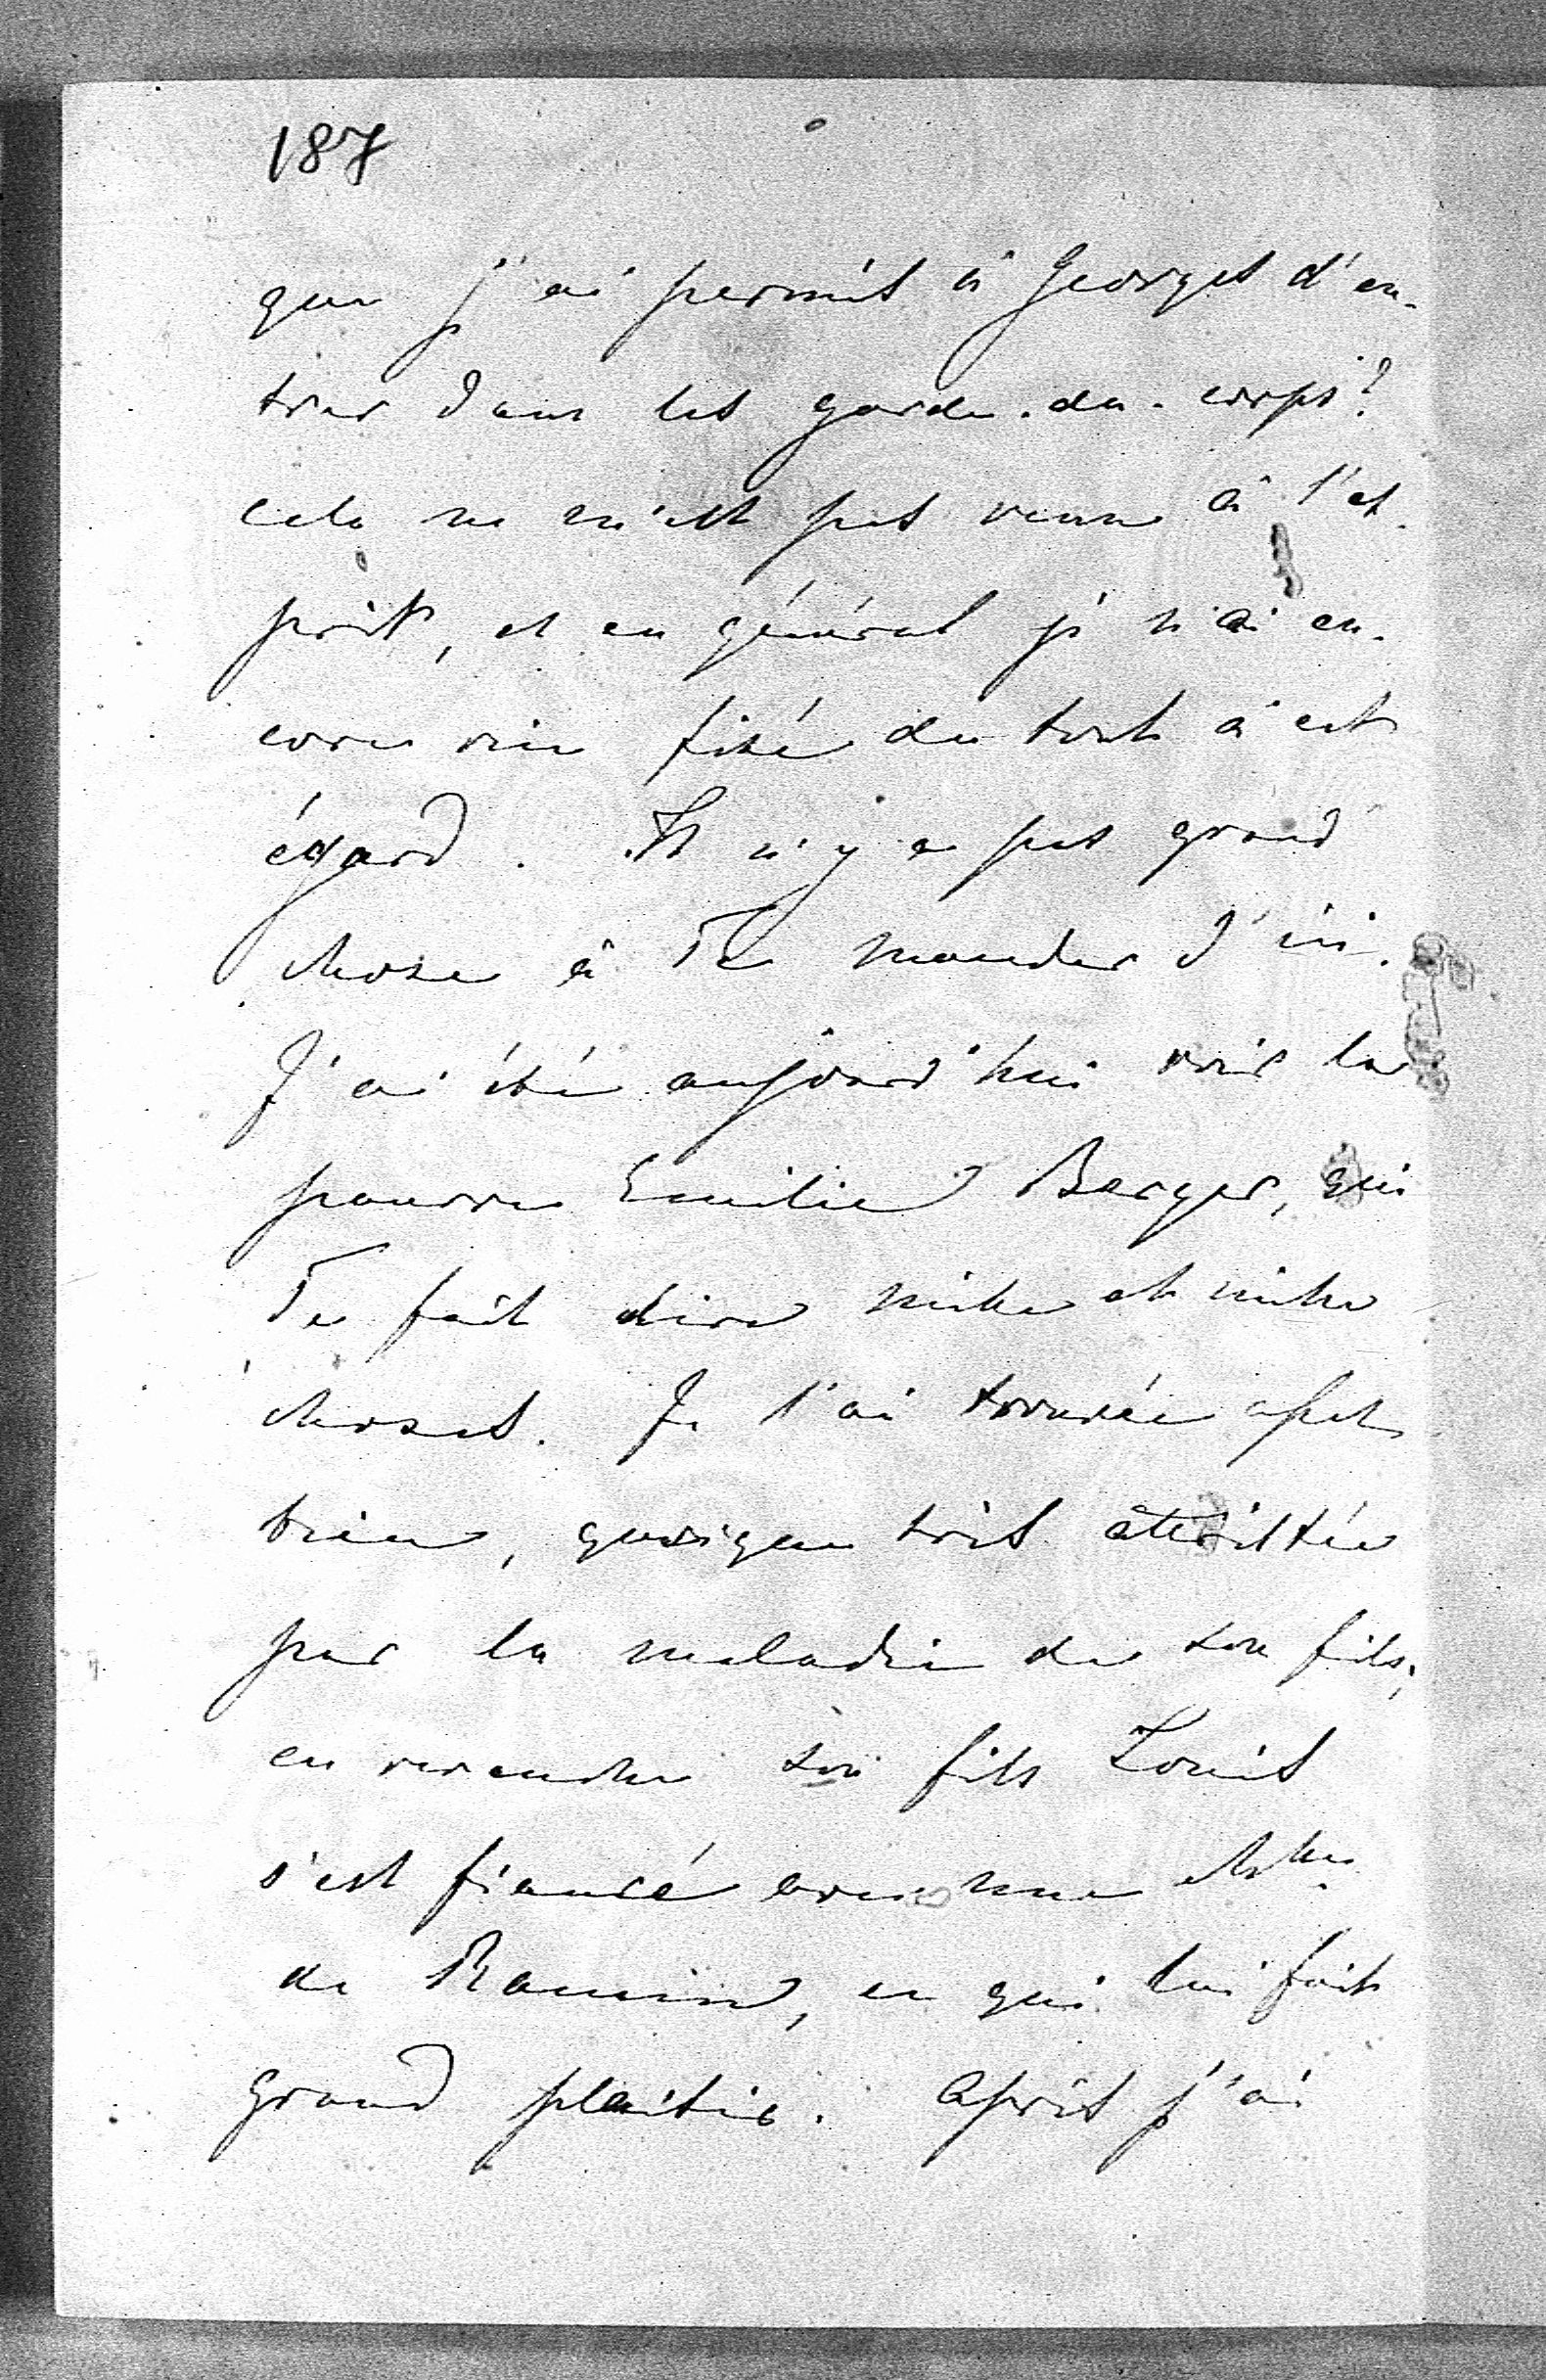 187
que j'ai permis à Georges d'en-
trer dans les garde-du-corps?
cela ne m'est pas venu à l'es-
prit, et en général je n'ai en-
core rien fixé du tout à cet
égard. Il n'y a pas grand
chose à Te mander d'ici.
J'ai été aujourd'hui voir la
pauvre Emilie Berger, qui
Te fait dire mille et mille
choses. Je l'ai trouvée assez
bien, quoique très attristée
par la maladie de son fils;
en revanche son fils Louis
s'est fiancé avec une
de Ramin, ce qui lui fait
grand plaisir. Après j'ai